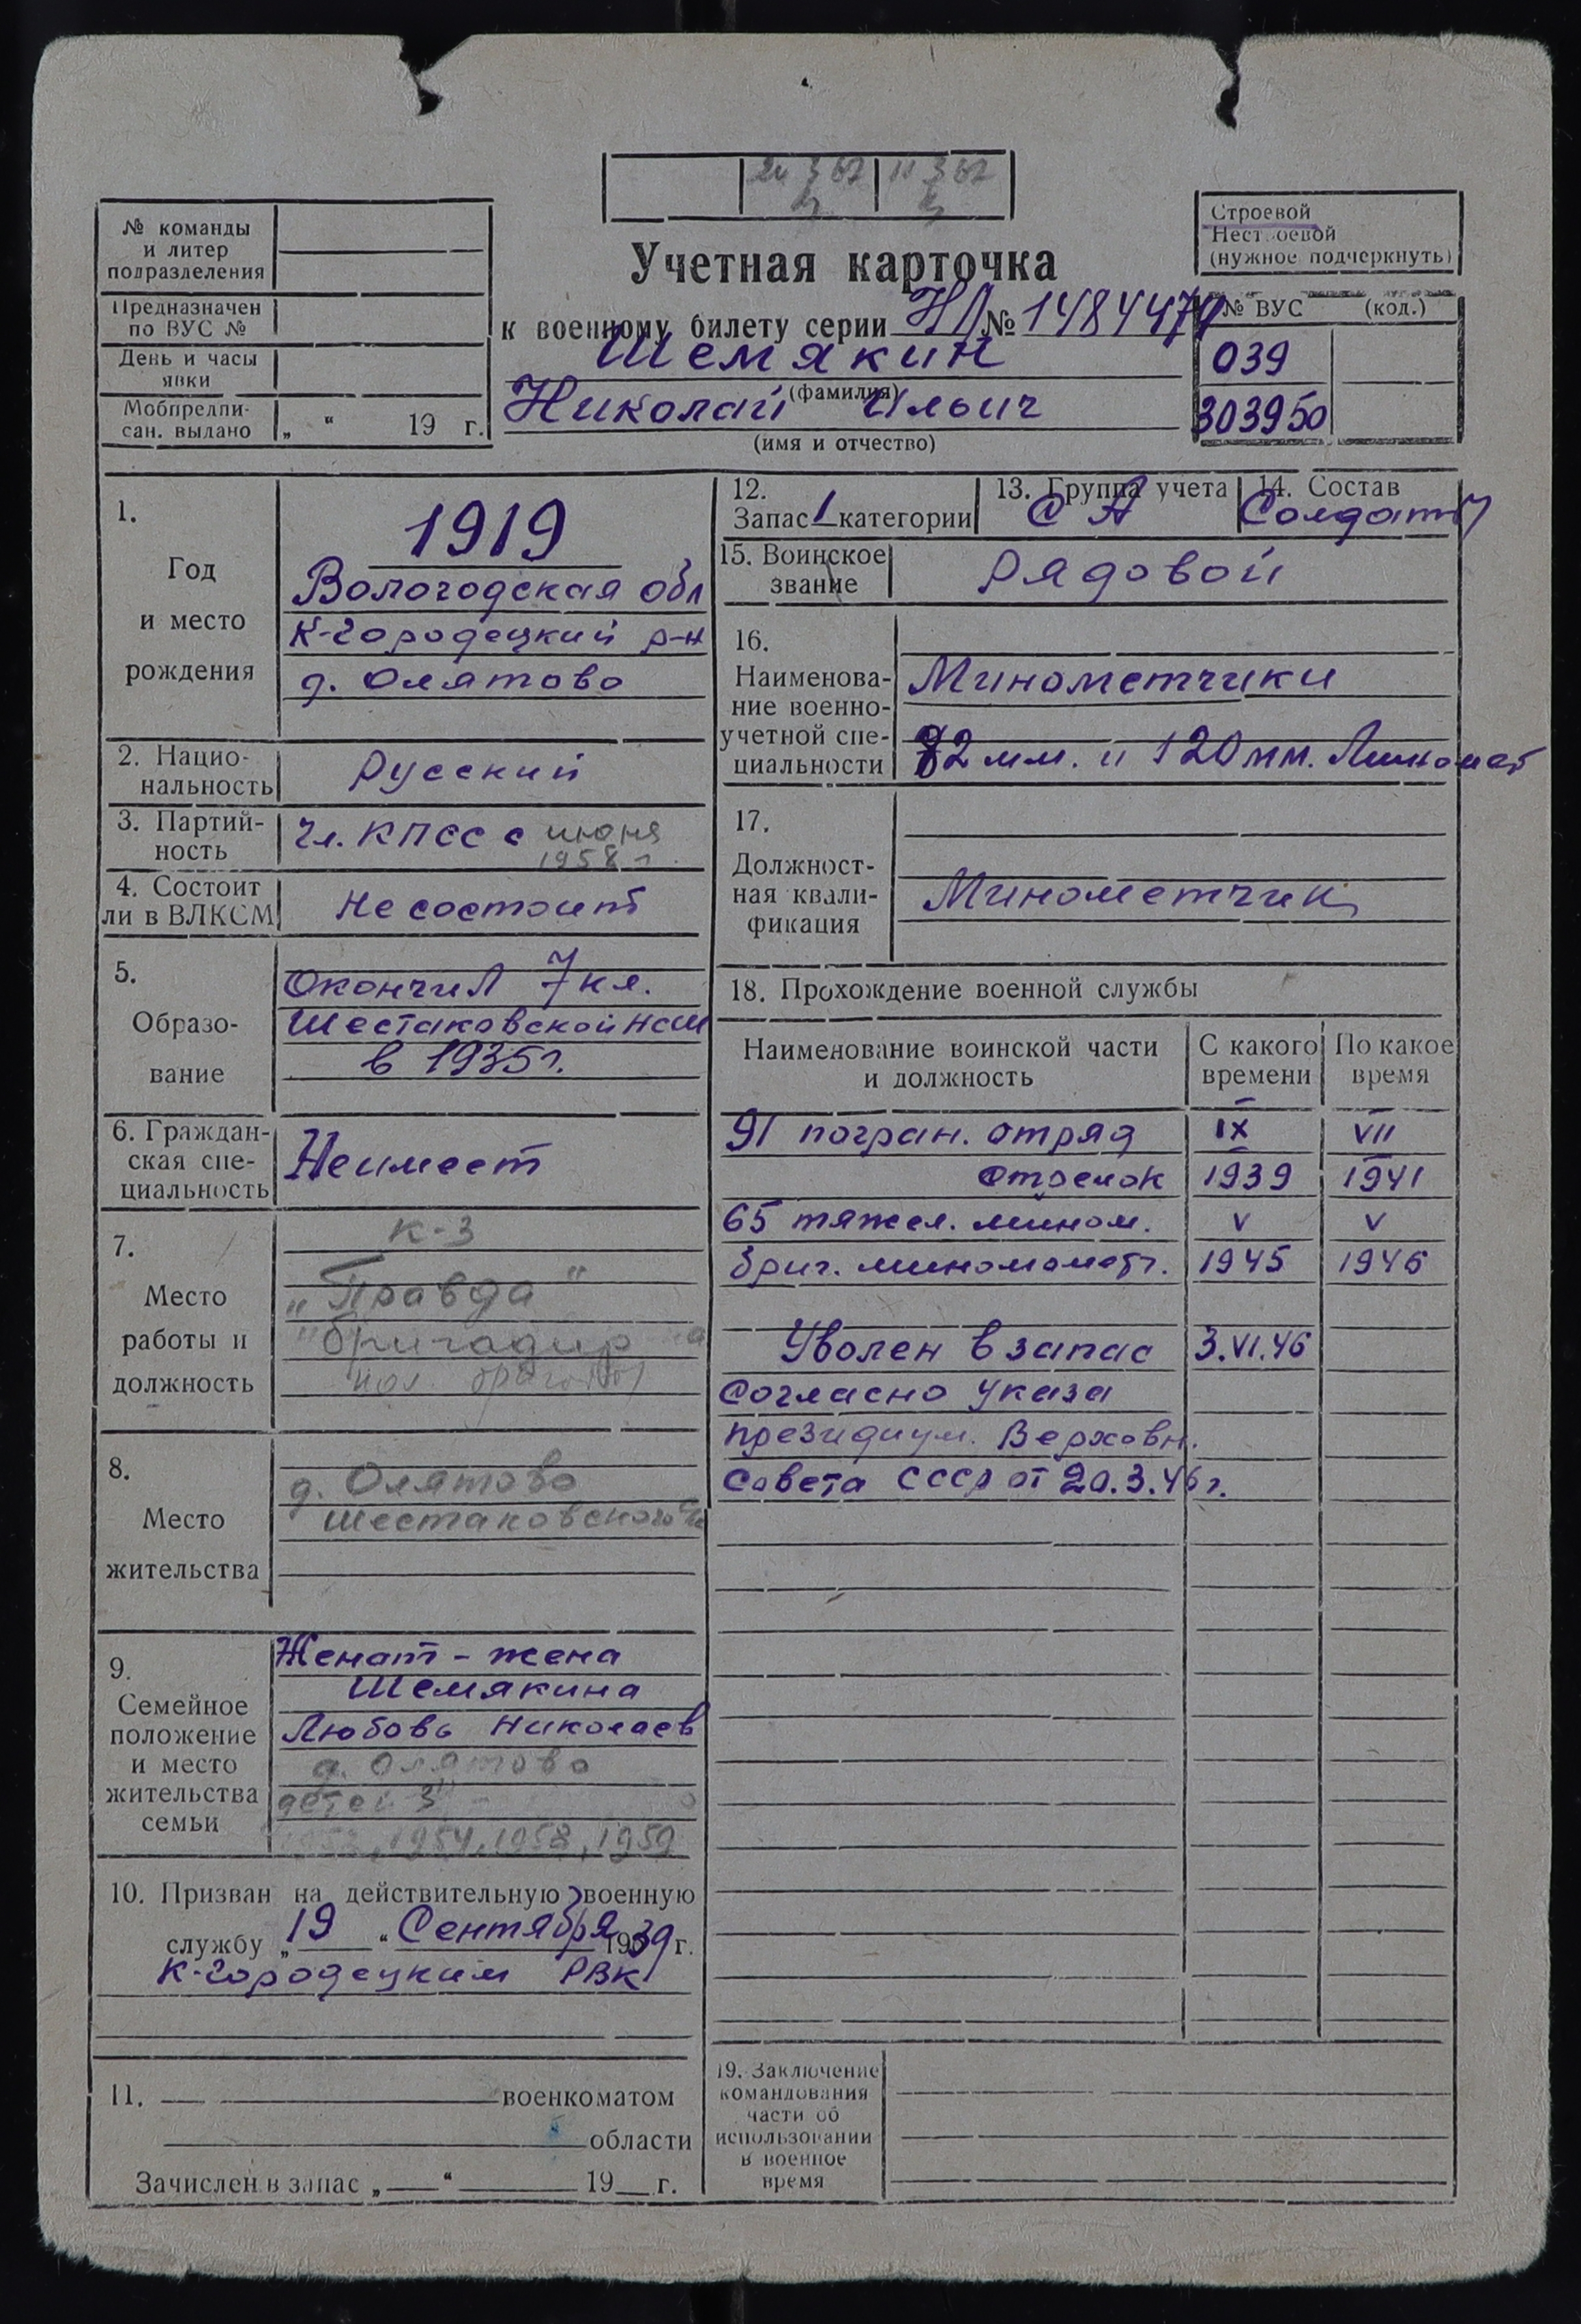 20 3 67 11 3 67
№ команды
и литер
подразделения
Предназначен
по ВУС №
День и часы
явки
Мобпредпи-
сан. выдано „ “ 19 г.
Строевой
Нестроевой
(нужное подчеркнуть)
Учетная карточка
к военному билету серии НЛ № 1484479
Шемякин
(фамилия)
Николай Ильич
(имя и отчество)
№ ВУС (код.)
039
303950
1.
Год
и место
рождения
1919
Вологодская обл
К-Городецкий р-н
д. Олятово
2. Нацио-
нальность
Русский
3. Партий-
ность
Чл. КПСС с июня
1958 г.
4. Состоит
ли в ВЛКСМ
Не состоит
5.
Образо-
вание
Окончил 7 кл.
Шестаковской НСШ
в 1935г.
6. Граждан-
ская спе-
циальность
Неимеет
7.
Место
работы и
должность
К-з
„Правда"
бригадир
пол
8.
Место
жительства
д. Олятово
Шестаковского с/с
9.
Семейное
положение
и место
жительства
семьи
Женат - жена
Шемякина
Любовь Николаев
д. Олятово
детей 3
1954, 1958, 1959
10. Призван на действительную военную
службу „19“ Сентября 1939 г.
К-Городецким РВК
11. военкоматом
области
Зачислен в запас „ “ 19 г.
12.
Запас 1 категории
13. Группа учета
СА
14. Состав
Солдаты
15. Воинское
звание
Рядовой
16.
Наименова-
ние военно-
учетной спе-
циальности
Минометчики
82 мм. и 120 мм. Миномет
17.
Должност-
ная квали-
фикация
Минометчик
18. Прохождение военной службы
Наименование воинской части
и должность
С какого
времени
По какое
время
91 погран. отряд IX VII
Стрелок 1939 1941
65 тяжел. мином. V V
бриг. миномометч. 1945 1946
Уволен в запас 3.VI.46
Согласно указа
президиум. Верховн.
Совета СССР от 20.3.46г.
19. Заключение
командования
части об
использовании
в военное
время